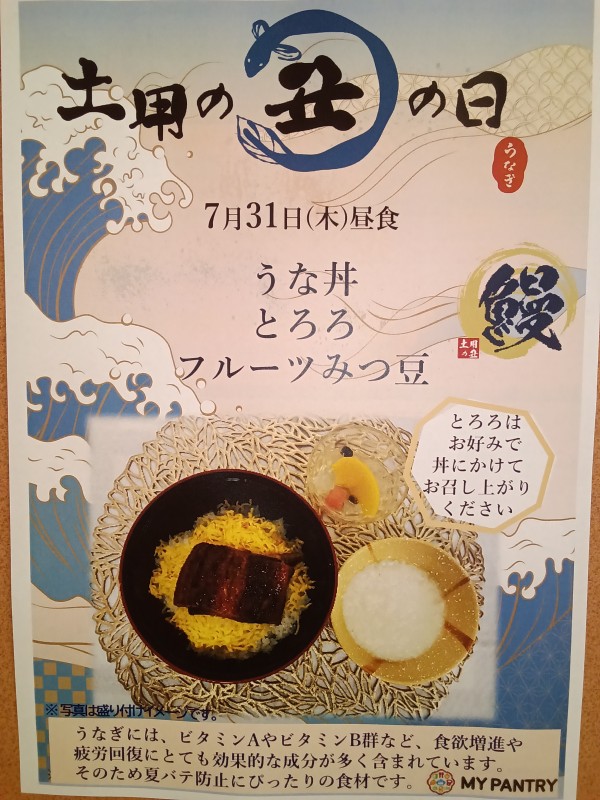 土用の丑の日
うなぎ
7月31日(木)昼食
うな丼
とろろ
フルーツみつ豆
鰻
土用
の丑
とろろは
お好みで
丼にかけて
お召し上がり
ください
※写真は盛り付けイメージです。
うなぎには、ビタミンAやビタミンB群など、食欲増進や
疲労回復にとても効果的な成分が多く含まれています。
そのため夏バテ防止にぴったりの食材です。
MY PANTRY